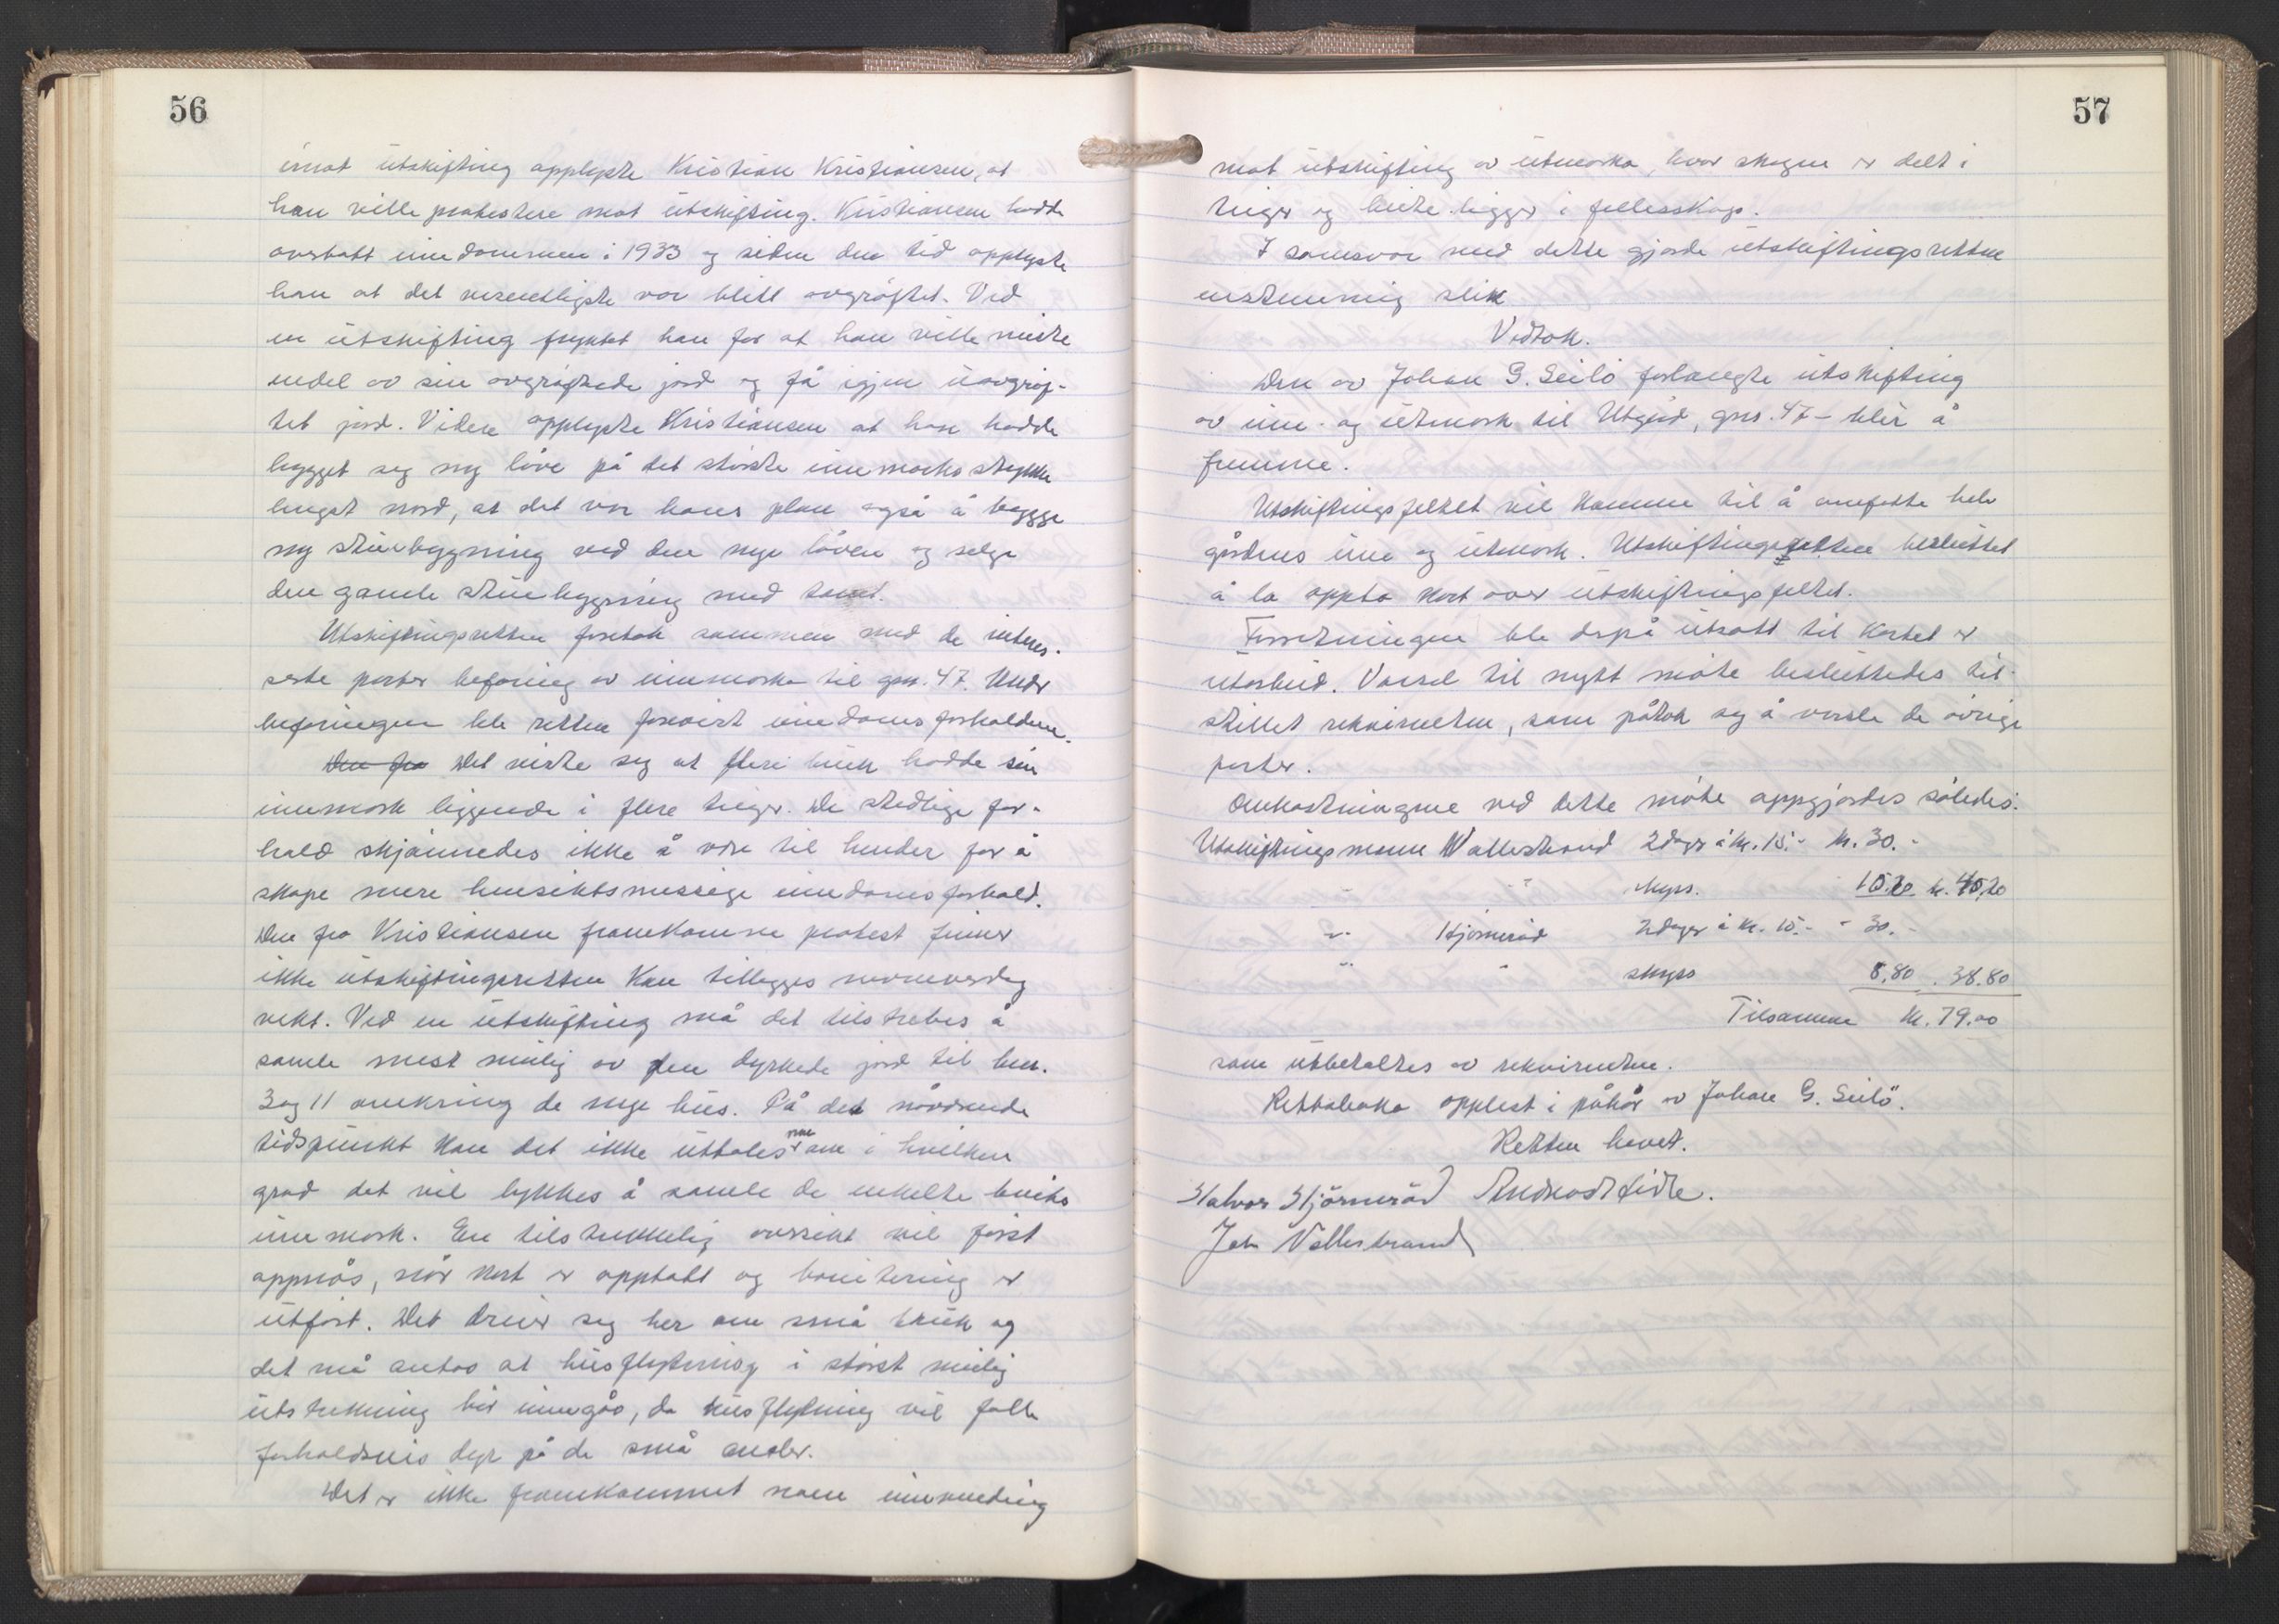 56
imot utskifting opplyste Kristian Kristiansen, at
han ville protestere mot utskifting. Kristiansen hadde
overtatt eiendommen i 1933 og siden den tid opplyste
han at det vesentligste var blitt avgrøftet. Ved
en utskifting fryktet han for at han ville miste
endel av sin avgrøftede jord og få igjen uavgrøf-
tet jord. Videre opplyste Kristiansen at han hadde
bygget seg ny løve på det største innmarksstykke
lengst nord, at det var hans plan også å bygge
ny stuebygning ved den nye løven og selge
den gamle stuebygning med tomt.
Utskiftingsretten foretok sammen med de interes-
serte parter befaring av innmarken til gnr. 47. Under
befaringen ble retten forevist eiendomsforholdene.
Den fra Det viste seg at flere bruk hadde sin
innmark liggende i flere teiger. De stedlige for-
hold skjønnedes ikke å være til hinder for å
skape mere hensiktsmessige eiendomsforhold.
Den fra Kristiansen framkomne protest finner
ikke utskiftingsretten kan tillegges nevneverdig
vekt. Ved en utskifting må det tilstrebes å
samle mest mulig av den dyrkede jord til bnr.
3 og 11 omkring de nye hus. På det nåværende
tidspunkt kan det ikke uttales noe om i hvilken
grad det vil lykkes å samle de enkelte bruks
innmark. En tilstrekkelig oversikt vil først
oppnås, når kart er opptatt og bonitering er
utført. Det dreier seg her om små bruk og
det må antas at husflytning i størst mulig
utstrekning bør unngås, da husflytning vil falle
forholdsvis dyr på de små andeler.
Det er ikke framkommet noen innvending
57
mot utskifting av utmarka, hvor skogen er delt i
teiger og beite ligger i fellesskap.
I samsvar med dette gjorde utskiftingsretten
enstemmig slik
Vedtak.
Den av Johan G. Seilö forlangte utskifting
av inn- og utmark til Utgård, gnr. 47 – blir å
fremme.
Utskiftingsfeltet vil komme til å omfatte hele
gårdens inn og utmark. Utskiftingsretten besluttet
å la oppta kart over utskiftingsfeltet.
Forretningen ble derpå utsatt til kartet er
utarbeid. Varsel til nytt møte besluttedes til-
stillet rekvirenten, som påtok seg å varsle de øvrige
parter.
Omkostningene ved dette møte oppgjordes således:
Utskiftingsmann Wallestrand 2 dager á kr. 15.- kr. 30.-
" " skyss. 10.20 kr. 40,20
" Hjörnerød 2 dager á kr. 15.- " 30.-
" " skyss 8,80 " 38.80
Tilsammen kr. 79.00
som utbetaltes av rekvirenten.
Rettsboka opplest i påhør av Johan G. Seilö.
Retten hevet.
Halvor Hjörneröd
Joh Vallestrand